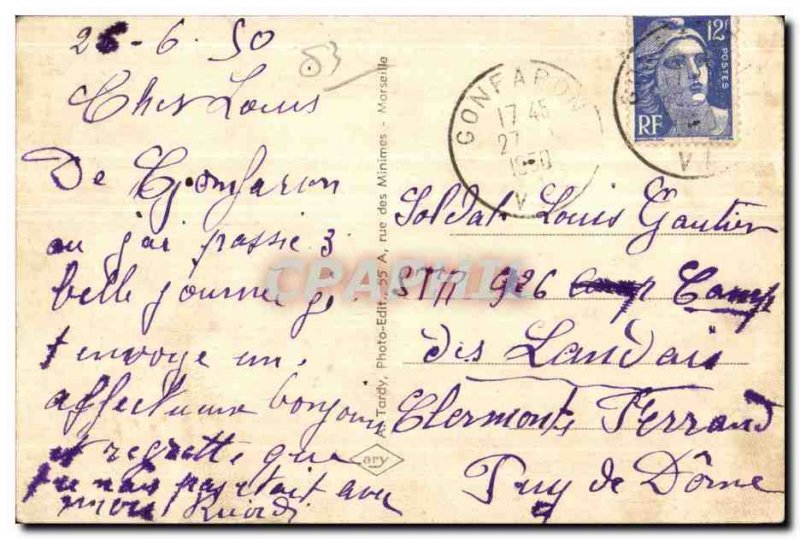 26-6.50
53
Cher Louis
De Gonfaron
ou j'ai passé 3
belle journée je
t envoye un
affectueux bonjour
et regrette que
tu nais pas etait avec
moi
A. Tardy, Photo-Edit., 55 A, rue des Minimes - Marseille
ary
CPAPHIL
GONFARON
17 45
27
1950
V
12F
POSTES
RF
Soldat Louis Gautier
926 Camp Camp
des Landais
Clermont Ferrand
Puy de Dôme